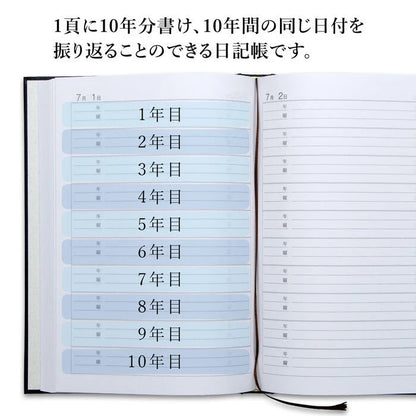 1頁に10年分書け、10年間の同じ日付を
振り返ることのできる日記帳です。
7月 1日
年
曜
1年目
年
曜
2年目
年
曜
3年目
年
曜
4年目
年
曜
5年目
年
曜
6年目
年
曜
7年目
年
曜
8年目
年
曜
9年目
年
曜
10年目
7月 2日
年
曜
年
曜
年
曜
年
曜
年
曜
年
曜
年
曜
年
曜
年
曜
年
曜